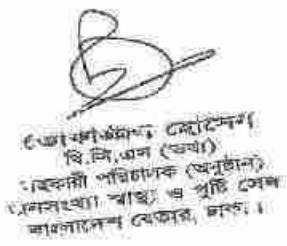 তোফাজ্জল হোসেন
বি.সি.এস (তথ্য)
সহকারী পরিচালক (অনুষ্ঠান)
জনসংখ্যা স্বাস্থ্য ও পুষ্টি সেল
বাংলাদেশ বেতার, ঢাকা।